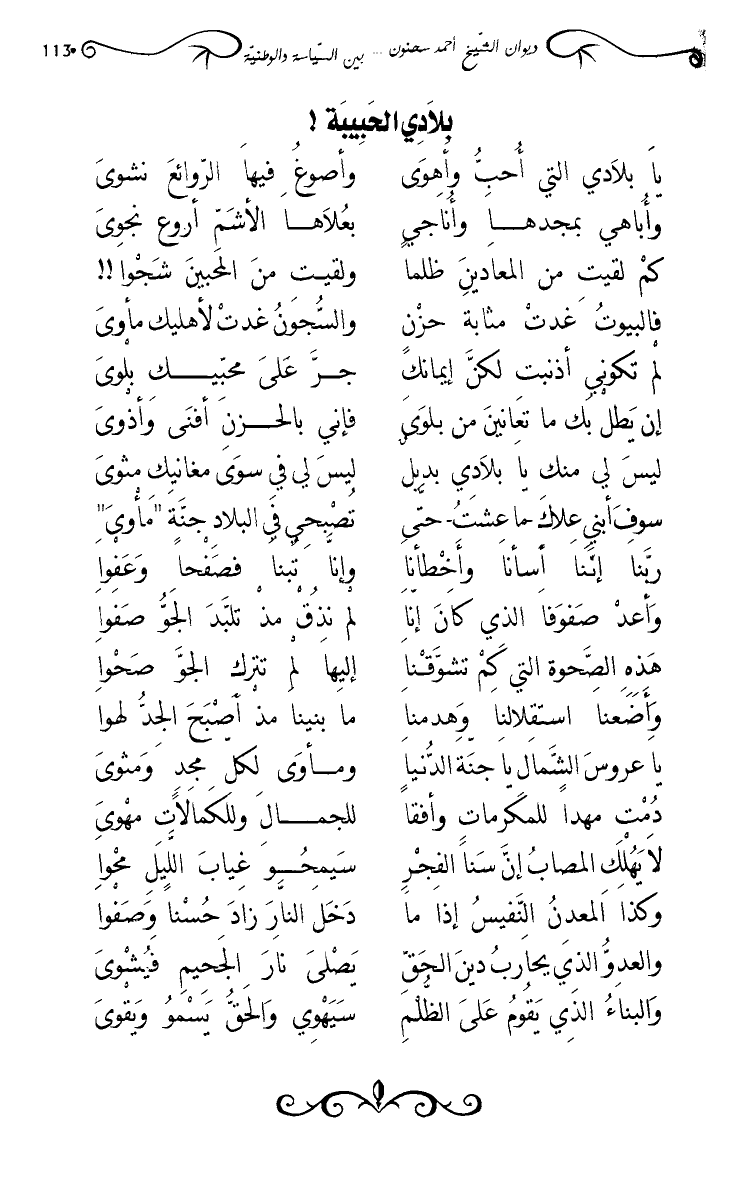 ديوان الشّيخ أحمد سحنون ... بين السّياسة والوطنيّة 113
بِلاَدِي الحَبِيبَة !
يَا بلاَدي التي أُحبُّ وأَهوَى وأَصوغُ فيهاَ الرّوائعَ نشوىَ
وأُباهي بمجدهـــا وأُناجي بعُلاَهـــا الأشَمّ أروع نجوىَ
كمْ لقيت من المعادينَ ظلما ولقيـت منَ المحَبينَ شَجْوا !!
فالبيوتُ غَدتْ مثابة حزْن والسُّجونُ غدتْ لأهليك مأوىَ
لم تكوني أذنبت لكنَّ إيمانك جـرَّ عَلىَ محبّيـــــك بلْوىَ
إن يَطل بك ما تعَانينَ من بلوَى فإني بالحـــزن أفنَى وَأذوىَ
ليسَ لي منك يا بلاَدي بديل ليسَ لي في سوَى مغانيك مثوىَ
سوفَ أبني علاك - ما عشتُ - حتّى تصْبحي في البلاد جنّة "مأوىَ"
ربَّنا إنَّنا أسأنا وأَخْطأنا وإنا تُبنا فصَفْحا وَعَفوا
وَأعدْ صفوَفا الذي كانَ إنّا لم نذقْ مذْ تلبَّدَ الجوُّ صفوا
هَذه الصَّحوة التي كمْ تشوَّقْنا إليها لم تترك الجوَّ صَحْوا
وأَضَعنا استقلالنا وَهدمنا ما بنينا مذْ أصْبَحَ الجدُّ لهوا
يا عروسَ الشَّمال يا جنة الدُّنيا ومــأوَى لكل مجد وَمثوىَ
دُمْت مهدا للمكرمات وأفقا للجمـــال وللكمالاَت مهْوىَ
لاَ يَهُلْك المصابُ إنَّ سَنا الفجْر سَيمحُـــو غيابَ الليل محْوا
وكذا المعدنُ النَّفيسُ إذا ما دَخَل النارَ زادَ حُسْنا وَصَفوا
والعدوُّ الذي يحاربُ دينَ الحَقّ يَصْلىَ نارَ الجَحيم فيُشْوىَ
وَالبناءُ الذي يَقُومُ عَلىَ الظُّلْم سَيَهْوي وَالحَقُّ يَسْمُو وَيَقْوىَ